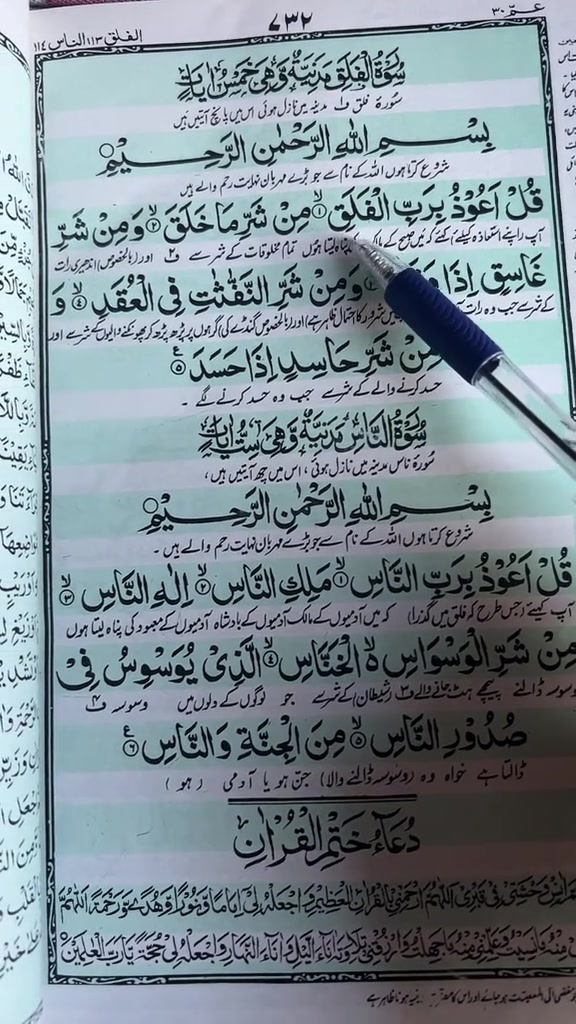 عمّ ٣٠
٧٣٢
الفلق ١١٣ الناس ١١٤
سُوْرَةُ الْفَلَقِ مَدَنِيَّةٌ وَّهِيَ خَمْسُ اٰيَاتٍ
سورۃ فلق ف۱ مدینہ میں نازل ہوئی اس میں پانچ آیتیں ہیں
بِسْــمِ اللهِ الرَّحْمٰنِ الرَّحِــيْمِ
شروع کرتا ہوں اللہ کے نام سے جو بڑے مہربان نہایت رحم والے ہیں
قُلْ اَعُوْذُ بِرَبِّ الْفَلَقِ ۙ۱ مِنْ شَرِّ مَا خَلَقَ ۙ۲ وَمِنْ شَرِّ
آپ (اپنے استعاذہ کیلئے) کہئے کہ میں صبح کے مالک کی پناہ لیتا ہوں تمام مخلوقات کے شر سے ف۲ اور (بالخصوص) اندھیری رات
غَاسِقٍ اِذَا وَمِنْ شَرِّ النَّفّٰثٰتِ فِي الْعُقَدِ ۙ۴ وَ
کے شر سے جب وہ رات (بالخصوص گنڈے کی) گرہوں پر پڑھ پڑھ کر پھونکنے والیوں کے شر سے اور
مِنْ شَرِّ حَاسِدٍ اِذَا حَسَدَ ۵ ع
حسد کرنے والے کے شر سے جب وہ حسد کرنے لگے ۔
سُوْرَةُ النَّاسِ مَدَنِيَّةٌ وَّهِيَ سِتُّ اٰيَاتٍ
سورۃ ناس مدینہ میں نازل ہوئی ، اس میں چھ آیتیں ہیں ،
بِسْــمِ اللهِ الرَّحْمٰنِ الرَّحِــيْمِ
شروع کرتا ہوں اللہ کے نام سے جو بڑے مہربان نہایت رحم والے ہیں ۔
قُلْ اَعُوْذُ بِرَبِّ النَّاسِ ۙ۱ مَلِكِ النَّاسِ ۙ۲ اِلٰهِ النَّاسِ ۙ۳
آپ کہیئے (جس طرح کہ فلق میں گذرا) کہ میں آدمیوں کے مالک آدمیوں کے بادشاہ آدمیوں کے معبود کی پناہ لیتا ہوں
مِنْ شَرِّ الْوَسْوَاسِ ۵ۙ الْخَنَّاسِ ۙ۴ الَّذِيْ يُوَسْوِسُ فِيْ
وسوسہ ڈالنے پیچھے ہٹ جانے والے ف۳ (شیطان) کے شر سے جو لوگوں کے دلوں میں وسوسہ ف۴
صُدُوْرِ النَّاسِ ۙ۵ مِنَ الْجِنَّةِ وَالنَّاسِ ۶ ع
ڈالتا ہے خواہ وہ (وسوسہ ڈالنے والا) جن ہو یا آدمی (ہو)
دُعَاءُ خَتْمِ الْقُرْاٰنِ
وَحْشَتِيْ فِيْ قَبْرِيْ اَللّٰهُمَّ ارْحَمْنِيْ بِالْقُرْاٰنِ الْعَظِيْمِ وَاجْعَلْهُ لِيْ اِمَامًا وَّنُوْرًا وَّهُدًى وَّرَحْمَةً اَللّٰهُمَّ
مِنْهُ مَا نَسِيْتُ وَعَلِّمْنِيْ مِنْهُ مَا جَهِلْتُ وَارْزُقْنِيْ تِلَاوَتَهٗ اٰنَآءَ الَّيْلِ وَاٰنَآءَ النَّهَارِ وَاجْعَلْهُ لِيْ حُجَّةً يَّا رَبَّ الْعٰلَمِيْنَ